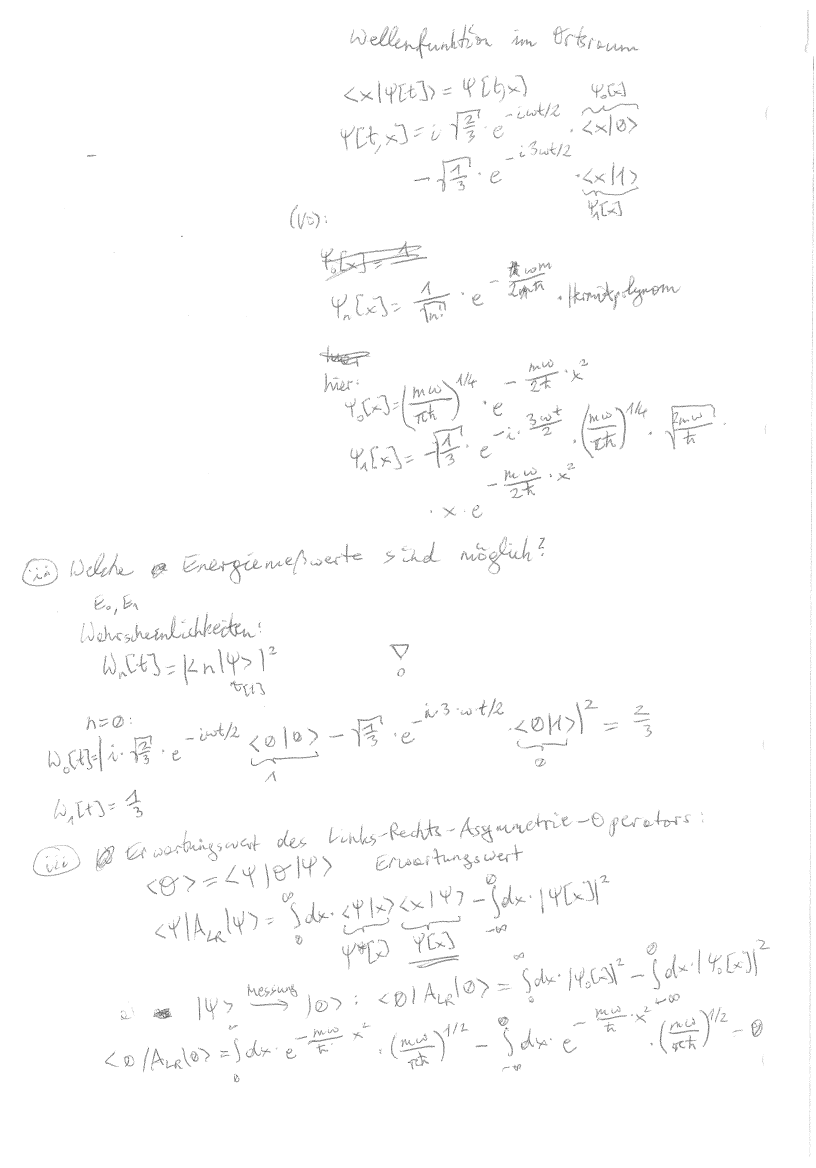 Wellenfunktion im Ortsraum
<x|Ψ[t]> = Ψ[t,x]
Ψ[t,x] = i √(2/3) · e^(-iωt/2) · <x|0> Ψ₀[x]
- √(1/3) · e^(-i3ωt/2) · <x|1> Ψ₁[x]
Ψ₀[x] = 1
Ψₙ[x] = 1/√(n!) · e
hier:
Ψ₀[x] = (mω/πħ)^(1/4) · e^(-mω/2ħ · x²)
Ψ₁[x] = -√(1/3) · e^(-i · 3ωt/2) · (mω/πħ)^(1/4) · √(2mω/ħ) ·
· x · e^(-mω/2ħ · x²)
(ii) Welche Energiemeßwerte sind möglich?
E₀, E₁
Wahrscheinlichkeiten:
Wₙ[t] = |<n|Ψ>|²
n=0:
W₀[t] = |i · √(2/3) · e^(-iωt/2) <0|0> - √(1/3) · e^(-i·3·ωt/2) · <0|1>|² = 2/3
1 0
W₁[t] = 1/3
(iii) Erwartungswert des Links-Rechts-Asymmetrie-Operators:
<O> = <Ψ|O|Ψ> Erwartungswert
<Ψ|A_LR|Ψ> = ∫₀^∞ dx · <Ψ|x> <x|Ψ> - ∫_(-∞)^0 dx · |Ψ[x]|²
Ψ*[x] Ψ[x]
|Ψ> Messung → |0> : <0|A_LR|0> = ∫₀^∞ dx · |Ψ₀[x]|² - ∫_(-∞)^0 dx · |Ψ₀[x]|²
<0|A_LR|0> = ∫₀^∞ dx · e^(-mω/ħ · x²) · (mω/πħ)^(1/2) - ∫_(-∞)^0 dx · e^(-mω/ħ · x²) · (mω/πħ)^(1/2) = 0